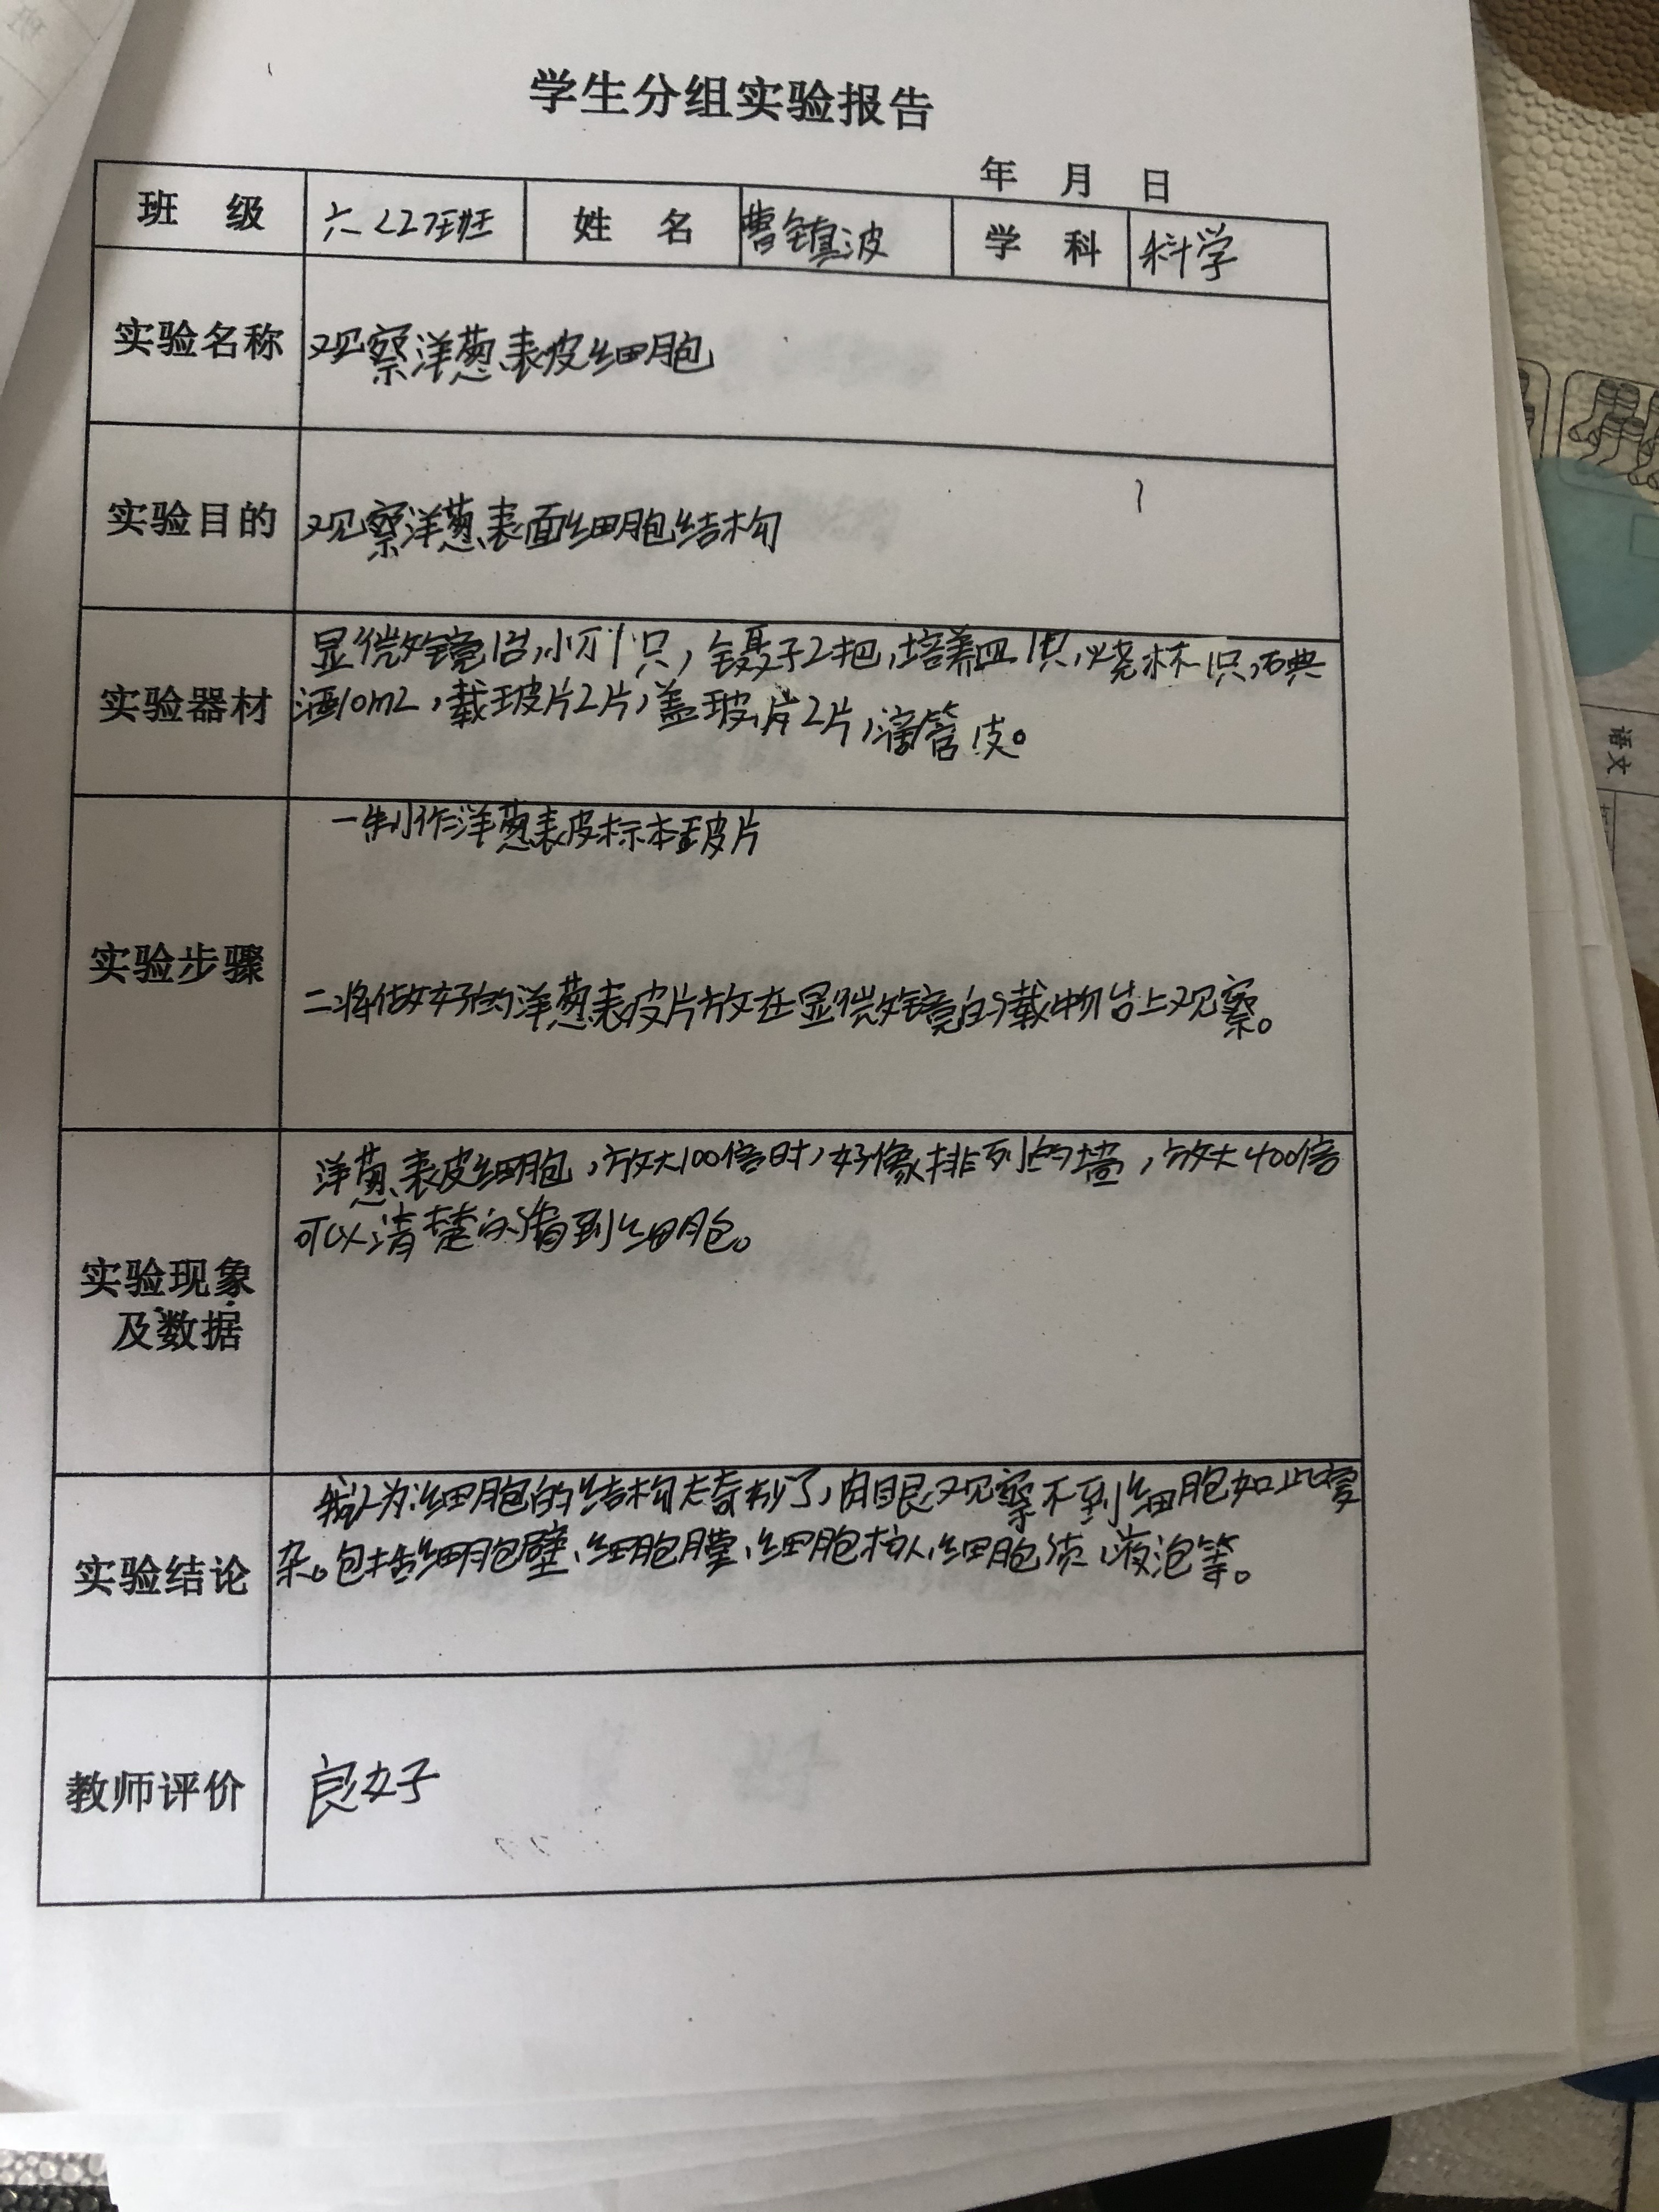 学生分组实验报告
年 月 日
班 级 六<2>班 姓 名 曹镇波 学 科 科学
实验名称 观察洋葱表皮细胞
实验目的 观察洋葱表面细胞结构
显微镜1台,小刀1只,镊子2把,培养皿1只,烧杯1只,碘
实验器材 酒10m2,载玻片2片,盖玻片2片,滴管1支。
一制作洋葱表皮标本玻片
实验步骤
二将做好的洋葱表皮片放在显微镜的载物台上观察。
洋葱表皮细胞,放大100倍时,好像排列的墙,放大400倍
可以清楚的看到细胞。
实验现象
及数据
我认为细胞的结构太奇妙了,肉眼观察不到细胞如此复
实验结论 杂。包括细胞壁、细胞膜、细胞核、细胞质、液泡等。
教师评价 良好
语文